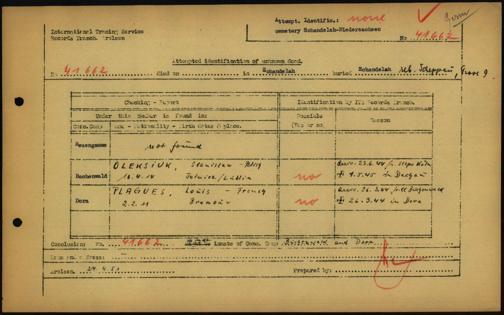 International Tracing Service
Records Branch. Arolsen
Attempt. Identific.: none
cemetery Schandelah-Niedersachsen
No 41662
Attempted identification of unknown dead.
No. 41662 died on in Schandelah buried Schandelah Grave 9
Checking - Report
Identification by ITS Records Branch.
Under this Number is found in:
Possible
Reason
Conc. Camp Name - Nationality - Birth date & place.
(Yes or no
Neuengamme not found
OLEKSIUK, Stanislaw - Polig
Buchenwald 18.4.14 /Lublin no + 1.5.45 in Dachau
PLAGUES, Louis - French
Dora 2.2.11 no + 26.3.44 in Dora
Conclusion: No. 41662 Inmate of Conc. Camp: Buchenwald and Dora
Arolsen 24.4.51 Prepared by: